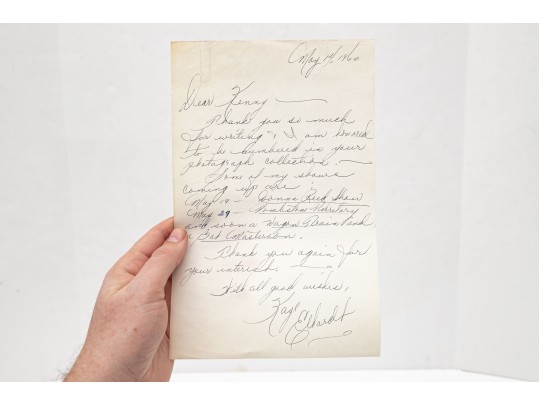 May 14, 1960
Dear Kenny —
Thank you so much
for writing, I am honored
to be numbered in your
photograph collection. —
Some of my shows
coming up are
May 19 - Donna Reed Show
May 29 - Tombstone Territory
and soon a Wagon Train and
a Bat Masterson.
Thank you again for
your interest. —
With all good wishes,
Kaye
Elhardt